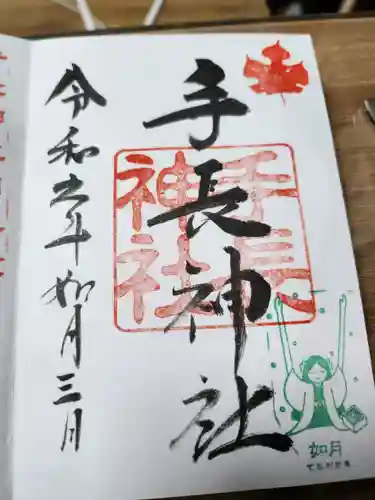 手長神社
手長
神社
令和六年如月三日
如月
てながさま